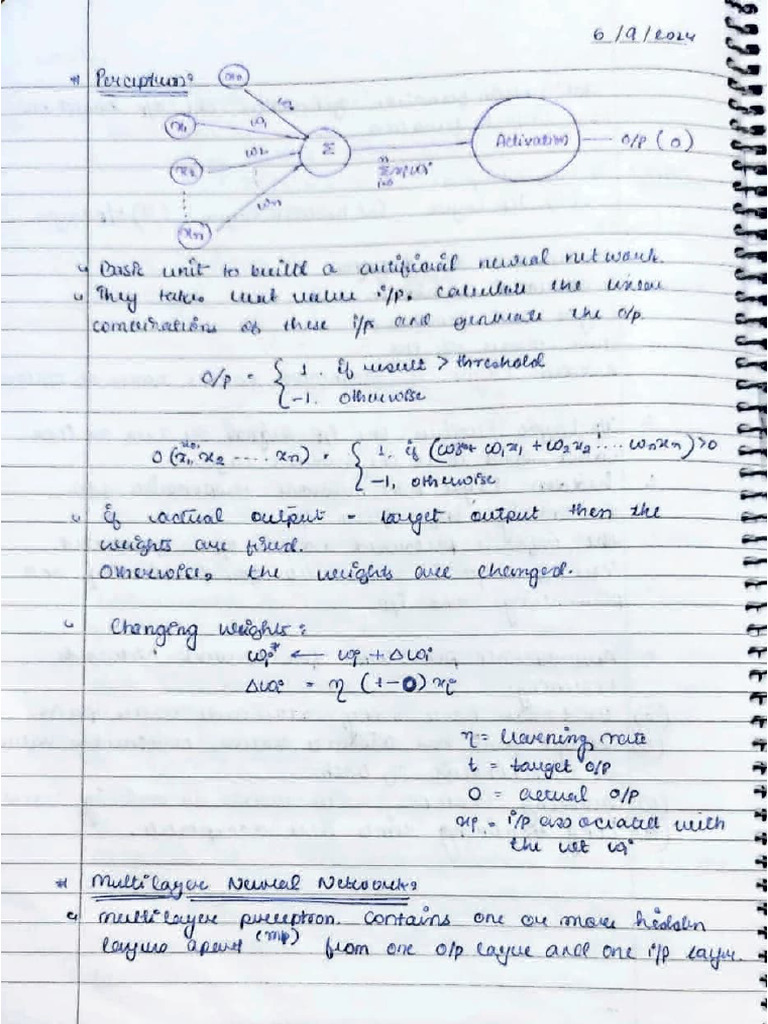 6/9/2024
* Perceptron:
x0
w0
x1
w1
x2
w2
Σ
Activation
o/p (O)
xn
wn
n
Σ xi wi
i=0
Basic unit to build a artificial neural network.
They take real value i/p, calculate the linear
combinations of these i/p and generate the o/p.
O/p = { 1, if result > threshold
-1, otherwise
O(x1, x2 .... xn) = { 1, if (w0 + w1x1 + w2x2 .... wnxn) > 0
-1, otherwise
if actual output = target output then the
weights are fixed.
Otherwise, the weights are changed.
Changing weights:
wi ← wi + Δwi
Δwi = η (t-O) xi
η = learning rate
t = target o/p
O = actual o/p
xi = i/p associated with
the wt wi
* Multilayer Neural Network:
multilayer perceptron contains one or more hidden
layers apart (mlp) from one o/p layer and one i/p layer.